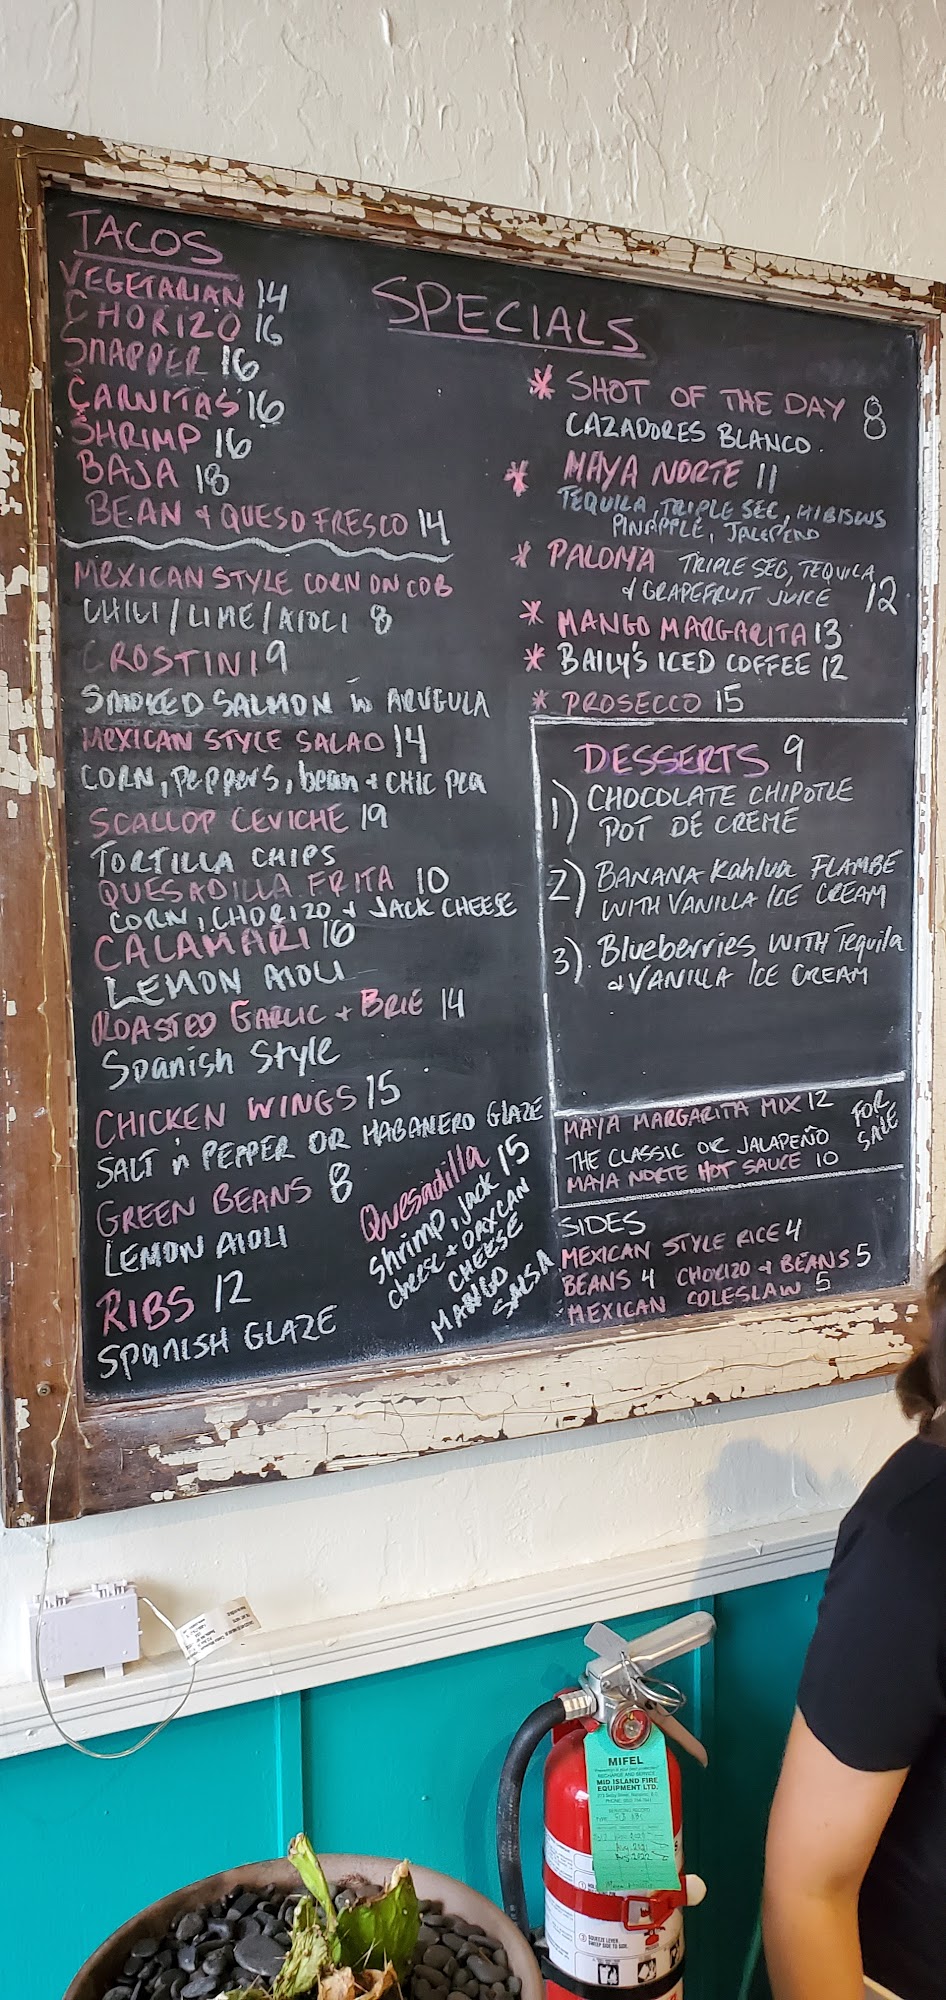 TACOS
VEGETARIAN 14
CHORIZO 16
SNAPPER 16
CARNITAS 16
SHRIMP 16
BAJA 18
BEAN + QUESO FRESCO 14
MEXICAN STYLE CORN ON COB
CHILI/LIME/AIOLI 8
CROSTINI 9
SMOKED SALMON W ARUGULA
MEXICAN STYLE SALAD 14
CORN, PEPPERS, bean + CHIC PEA
SCALLOP CEVICHE 19
TORTILLA CHIPS
QUESADILLA FRITA 10
CORN, CHORIZO + JACK CHEESE
CALAMARI 16
LEMON AIOLI
ROASTED GARLIC + BRIE 14
Spanish Style
CHICKEN WINGS 15
SALT n PEPPER OR HABANERO GLAZE
GREEN BEANS 8
LEMON AIOLI
RIBS 12
SPANISH GLAZE
Quesadilla 15
shrimp, jack
cheese + OAXCAN
CHEESE
MANGO
SALSA
SPECIALS
* SHOT OF THE DAY 8
CAZADORES BLANCO.
* MAYA NORTE 11
TEQUILA, TRIPLE SEC, HIBISUS
PINAPPLE, JALEPENO
* PALOMA TRIPLE SEC, TEQUILA
+ GRAPEFRUIT JUICE 12
* MANGO MARGARITA 13
* BAILY'S ICED COFFEE 12
* PROSECCO 15
DESSERTS 9
1) CHOCOLATE CHIPOTLE
POT DE CREME
2) BANANA Kahlua FLAMBÉ
WITH VANILLA ICE CREAM
3). Blueberries WITH Tequila
+ VANILLA ICE CREAM
MAYA MARGARITA MIX 12
THE CLASSIC OR JALAPEÑO
MAYA NORTE HOT SAUCE 10
FOR
SALE
SIDES
MEXICAN STYLE RICE 4
BEANS 4 CHORIZO + BEANS 5
MEXICAN COLESLAW 5
MIFEL
RECHARGE AND SERVICE
MID ISLAND FIRE
EQUIPMENT LTD.
SERVICING RECORD
Aug. 2021
Aug. 2022
SQUEEZE LEVER
SWEEP SIDE TO SIDE.